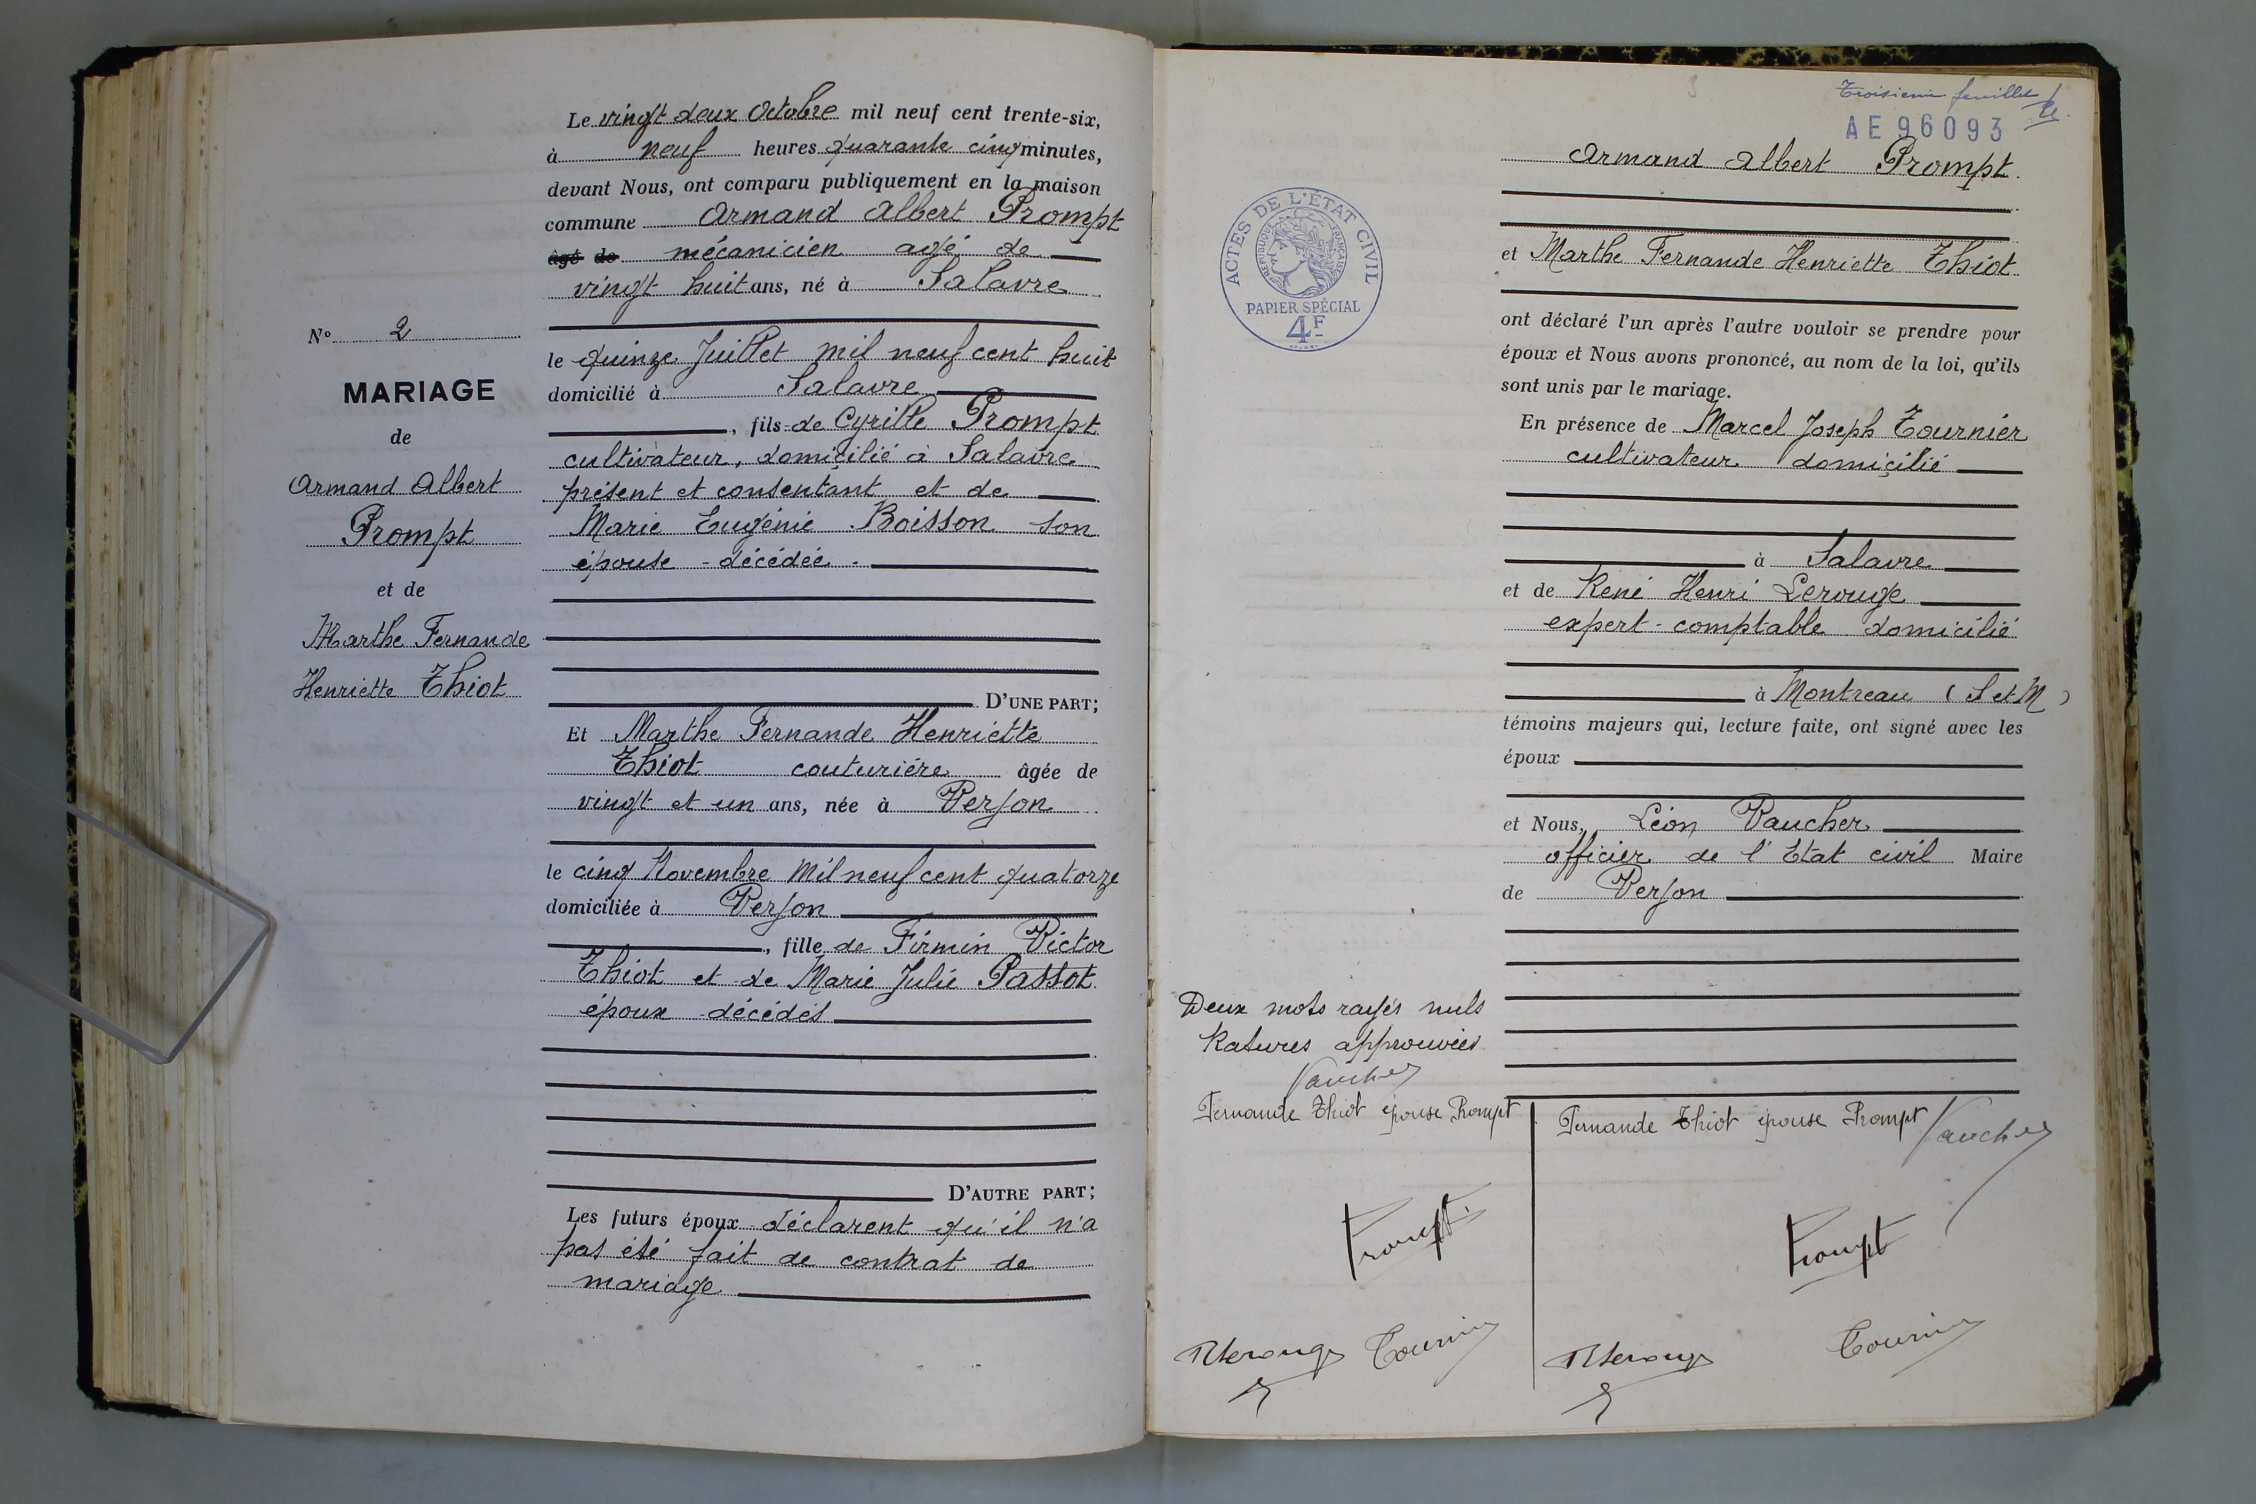 Le vingt deux Octobre mil neuf cent trente-six,
à neuf heures quarante cinq minutes,
devant Nous, ont comparu publiquement en la maison
commune Armand Albert Prompt
âgé de mécanicien agé de
vingt huit ans, né à Salavre
le quinze Juillet mil neuf cent huit
domicilié à Salavre
, fils de Cyrille Prompt
cultivateur, domicilié à Salavre
présent et consentant et de
Marie Eugénie Boisson son
épouse décédée.
D'UNE PART;
Et Marthe Fernande Henriette
Thiot couturière âgée de
vingt et un ans, née à Verjon
le cinq Novembre mil neuf cent quatorze
domiciliée à Verjon
, fille de Firmin Victor
Thiot et de Marie Julie Passot
époux décédés
D'AUTRE PART;
Les futurs époux déclarent qu'il n'a
pas été fait de contrat de
mariage
No 2
MARIAGE
de
Armand Albert
Prompt
et de
Marthe Fernande
Henriette Thiot
Troisième feuillet
AE 96093
Armand Albert Prompt
et Marthe Fernande Henriette Thiot
ont déclaré l'un après l'autre vouloir se prendre pour
époux et Nous avons prononcé, au nom de la loi, qu'ils
sont unis par le mariage.
En présence de Marcel Joseph Tournier
cultivateur domicilié
à Salavre
et de René Henri Lerouge
expert-comptable domicilié
à Montreau (S et M)
témoins majeurs qui, lecture faite, ont signé avec les
époux
et Nous, Léon Vaucher
officier de l'Etat civil Maire
de Verjon
ACTES DE L'ÉTAT CIVIL
RÉPUBLIQUE FRANÇAISE
PAPIER SPÉCIAL
4F
Deux mots rayés nuls
Ratures approuvées
Vaucher
Fernande Thiot épouse Prompt
Prompt
RLerouge Tournier
Fernande Thiot épouse Prompt Vaucher
Prompt
RLerouge Tournier